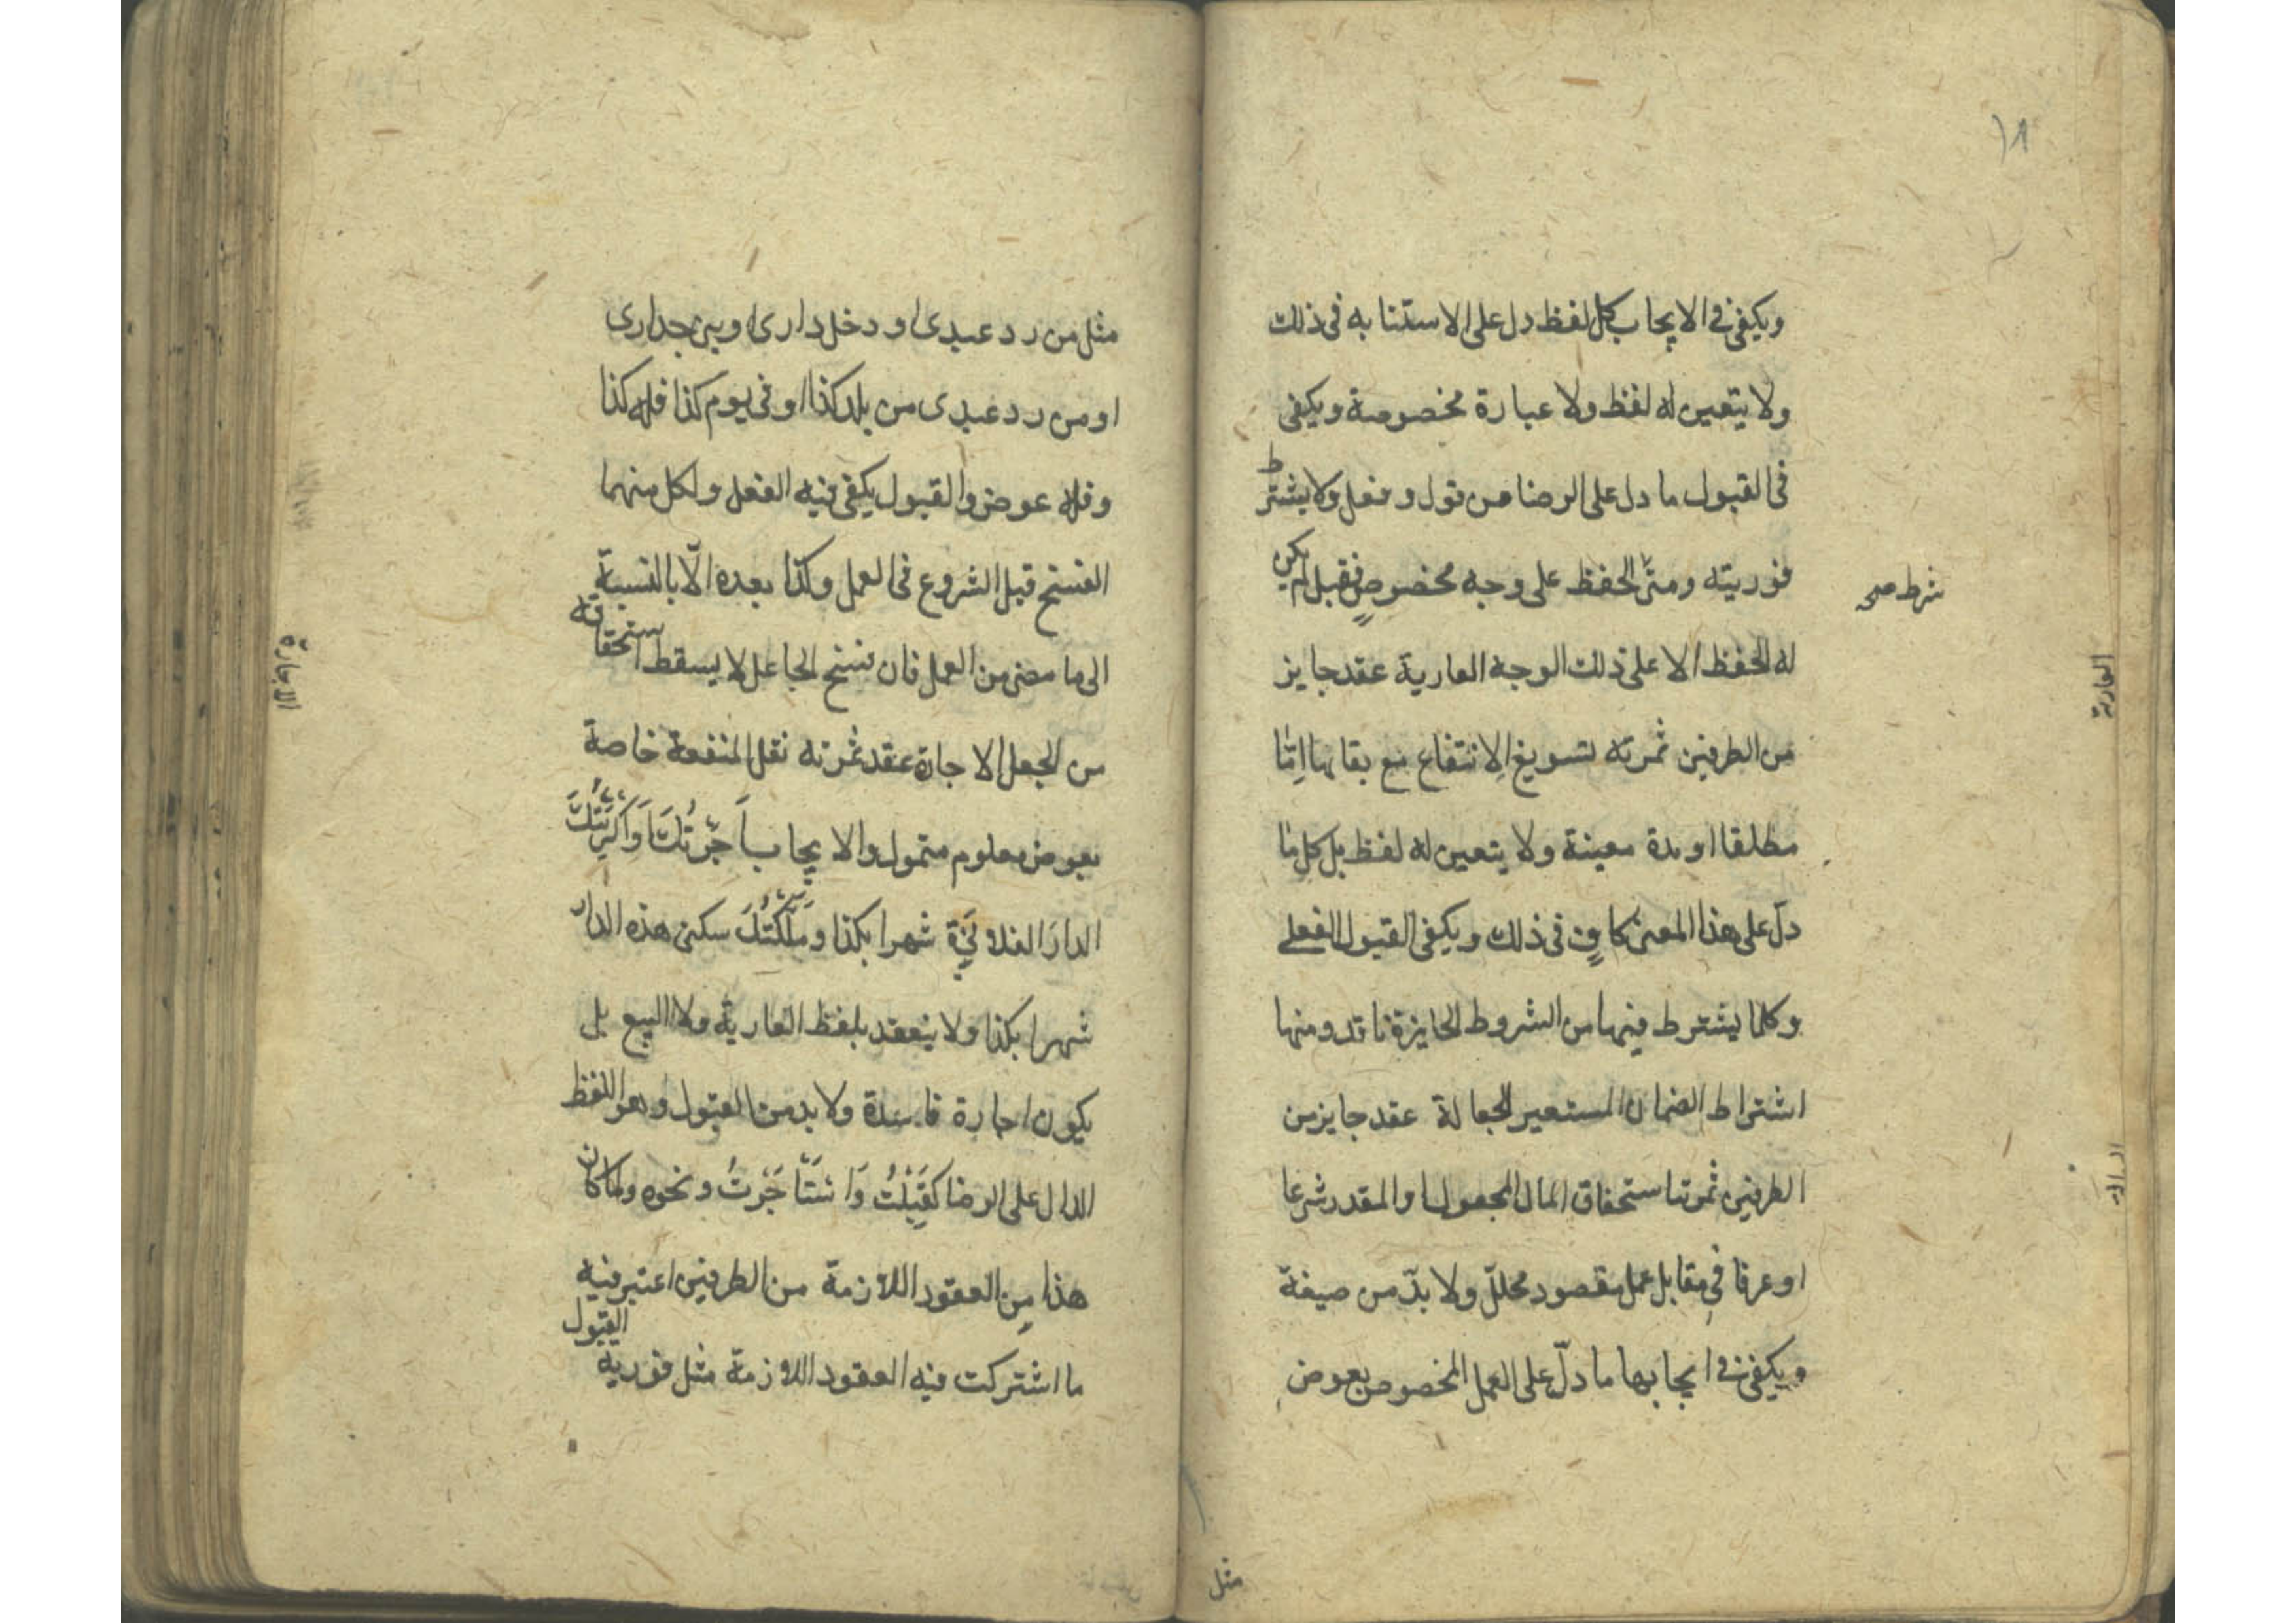 ١٨
ويكفى فى الايجاب كل لفظ دل على الاستنابه فى ذلك
ولا يتعين له لفظ ولا عبارة مخصوصة ويكفى
فى القبول ما دل على الرضا من قول و فعل ولا يشترط
فوريته ومتى الحفظ على وجه مخصوصٍ فقبل لم يكن
شرط صح
له الحفظ الا على ذلك الوجه العارية عقد جايز
العارية
من الطرفين ثمرته تسويغ الانتفاع مع بقائها امّا
مطلقا او مدة معينة ولا يتعين له لفظ بل كل ما
دلّ على هذا المعنى كافٍ فى ذلك ويكفى القبول الفعلى
وكلما يشترط فيها من الشروط الجايزة نافد ومنها
اشتراط الضمان المستعير الجعالة عقد جايز من
الطرفين ثمرتها استحقاق المال المجعول والمقدر شرعا
او عرفا فى مقابل عمل مقصود محلل ولا بدّ من صيغة
ويكفى فى ايجابها ما دلّ على العمل المخصوص بعوض
مثل
مثل من رد عبدى او دخل دارى او بنى جدارى
او من رد عبدى من بلد كذا او فى يوم كذا فله كذا
و فله عوض والقبول يكفى فيه الفعل ولكل منهما
الفسخ قبل الشروع فى العمل وكذا بعده الّا بالنسبة
الى ما مضى من العمل فان فسخ الجاعل لا يسقط استحقاقه
الاجارة
من الجعل الاجارة عقد ثمرته نقل المنفعة خاصة
بعوض معلوم متمول والايجاب اَجَرْتُكَ اَوَاَكْرَيْتُكَ
الدارَ الفلانيَة شهرا بكذا ومَلَّكْتُكَ سكنى هذه الدار
شهرا بكذا ولا ينعقد بلفظ العارية ولا البيع بل
يكون اجارة فاسدة ولا بد من القبول وهو اللفظ
الدال على الرضا كقَبِلْتُ وَاسْتَاْجَرْتُ ونحوه ولما كان
هذا مِن العقود اللازمة من الطرفين اعتبر فيه
ما اشتركت فيه العقود اللازمة مثل فورية القبول